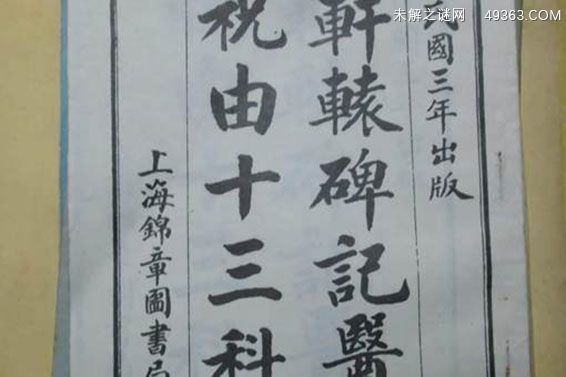 未解之谜网 49363.COM
民國三年出版
軒轅碑記醫
祝由十三科
上海錦章圖書局